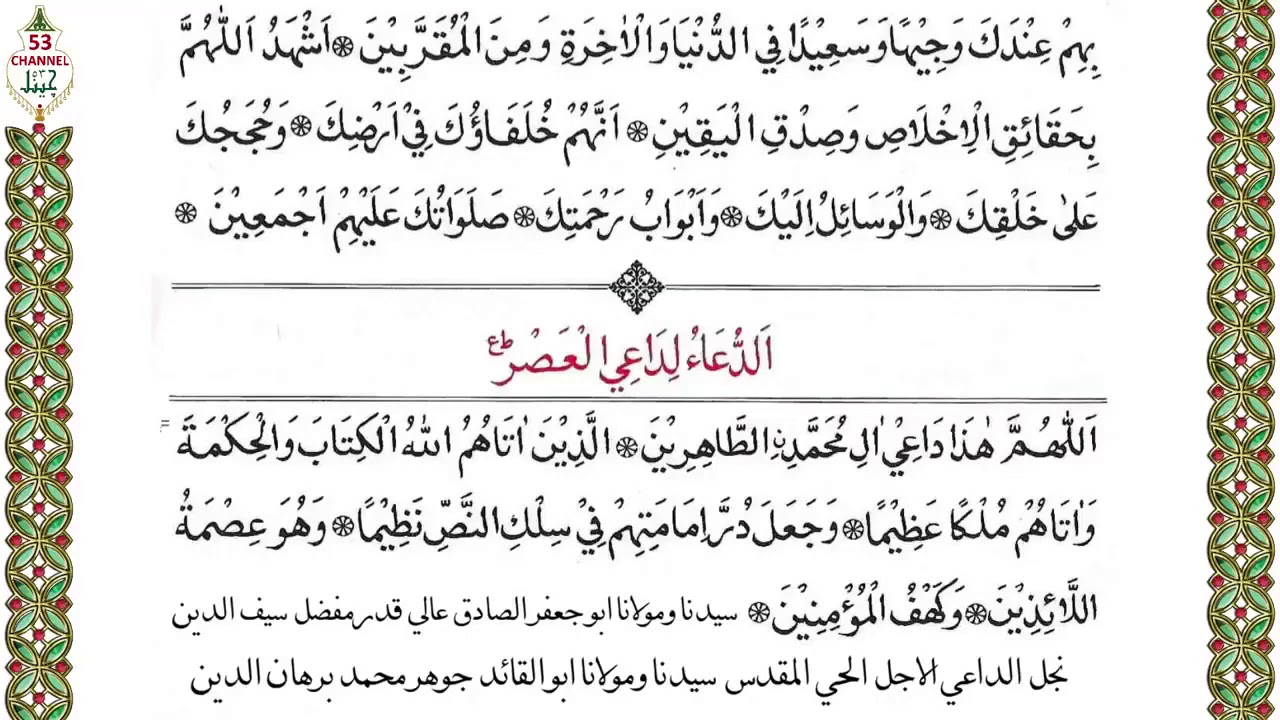 53
CHANNEL
چینل ۵۳
بِهِمْ عِنْدَكَ وَجِيْهًا وَسَعِيْدًا فِي الدُّنْيَا وَالْاٰخِرَةِ وَمِنَ الْمُقَرَّبِيْنَ ۞ اَشْهَدُ اللّٰهُمَّ
بِحَقَائِقِ الْاِخْلَاصِ وَصِدْقِ الْيَقِيْنِ ۞ اَنَّهُمْ خُلَفَاؤُكَ فِيْ اَرْضِكَ ۞ وَحُجَجُكَ
عَلىٰ خَلْقِكَ ۞ وَالْوَسَائِلُ اِلَيْكَ ۞ وَاَبْوَابُ رَحْمَتِكَ ۞ صَلَوَاتُكَ عَلَيْهِمْ اَجْمَعِيْنَ ۞
اَلدُّعَاءُ لِدَاعِي الْعَصْرِ ؏ط
اَللّٰهُمَّ هٰذَا دَاعِيْ اٰلِ مُحَمَّدِنِ الطَّاهِرِيْنَ ۞ الَّذِيْنَ اٰتَاهُمُ اللّٰهُ الْكِتَابَ وَالْحِكْمَةَ
وَاٰتَاهُمْ مُلْكًا عَظِيْمًا ۞ وَجَعَلَ دُرَّ اِمَامَتِهِمْ فِيْ سِلْكِ النَّصِّ نَظِيْمًا ۞ وَهُوَ عِصْمَةُ
اللَّائِذِيْنَ ۞ وَكَهْفُ الْمُؤْمِنِيْنَ ۞ سيدنا ومولانا ابو جعفر الصادق عالي قدر مفضل سيف الدين
نجل الداعي الاجل الحي المقدس سيدنا ومولانا ابو القائد جوهر محمد برهان الدين